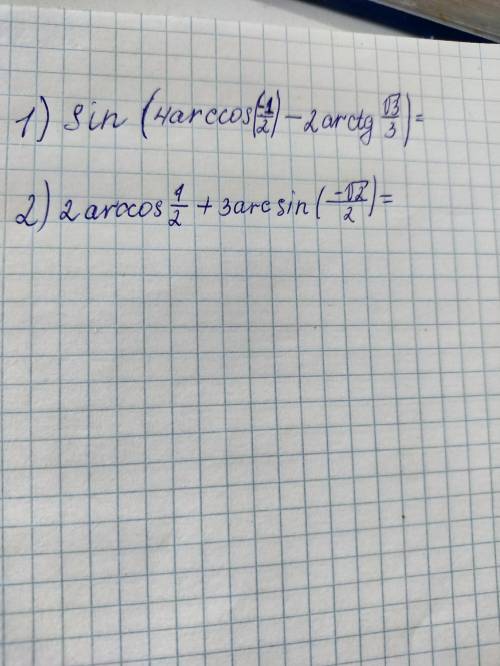 1) Sin (4arccos(-1/2) - 2arctg √3/3) =
2) 2arccos 1/2 + 3arcsin (-√2/2) =